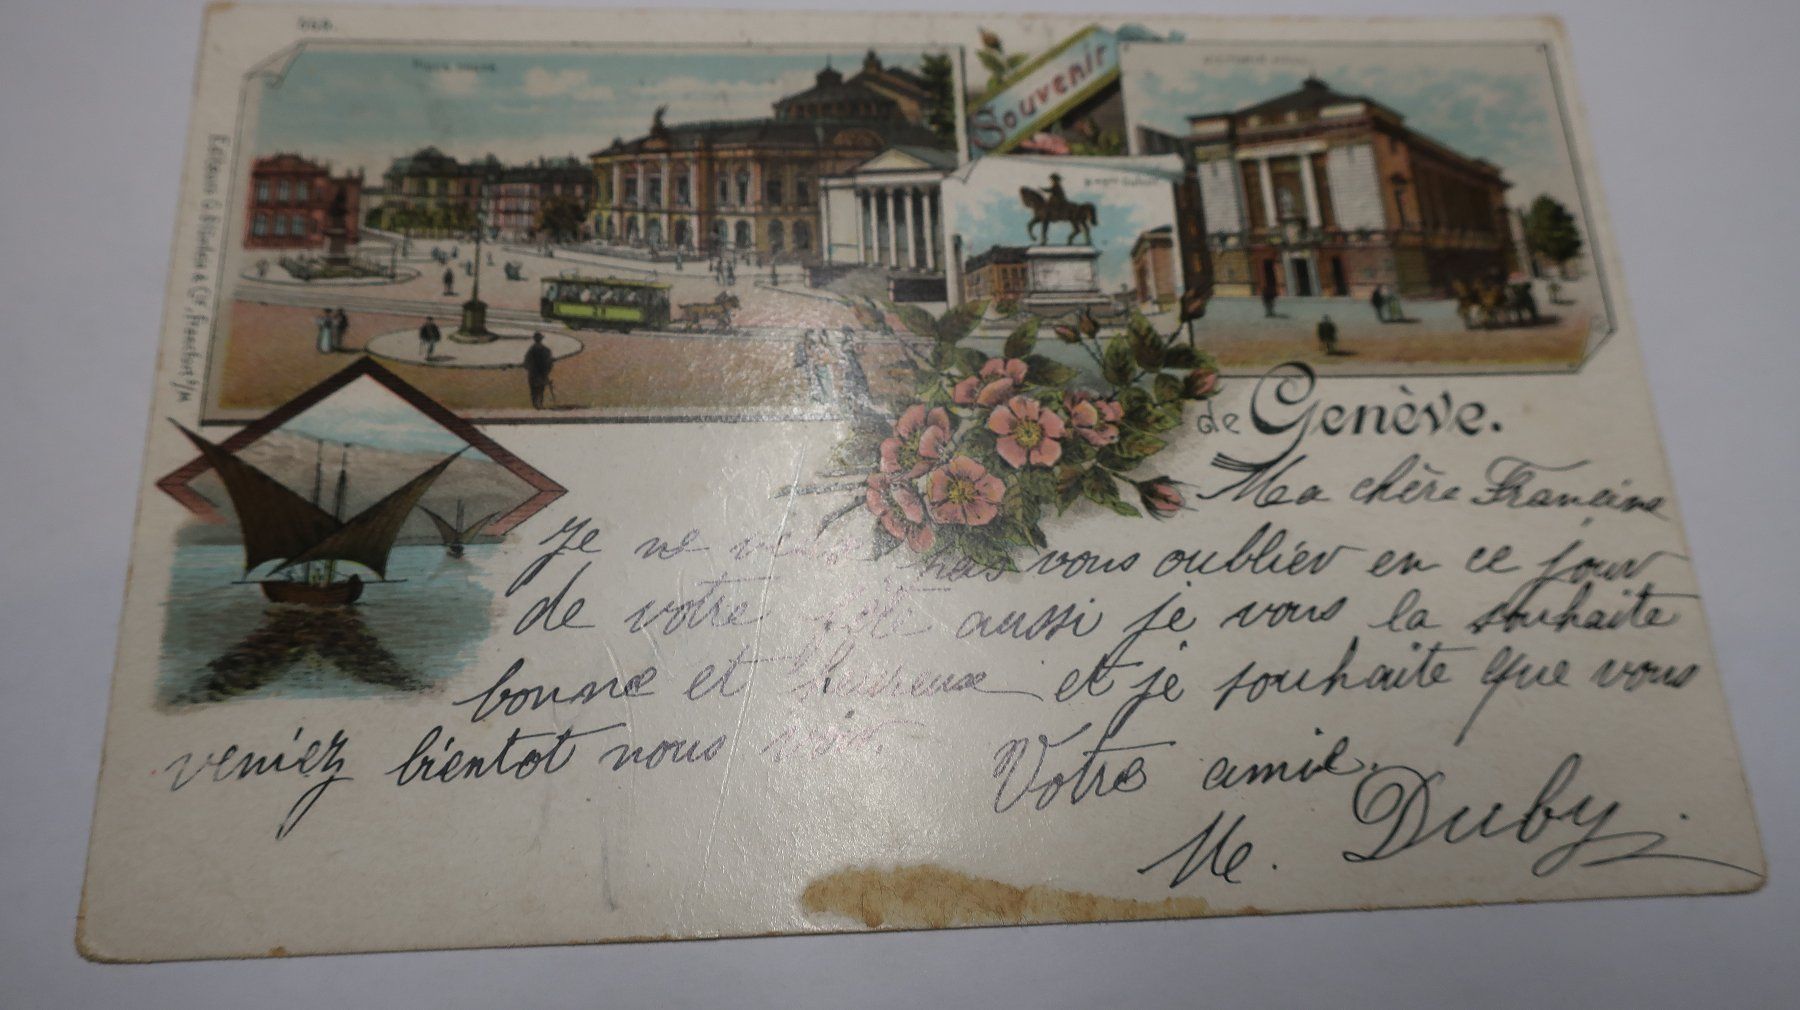 Souvenir
de Genève.
Ma chère Francine
Je ne veux pas vous oublier en ce jour
de votre fête aussi je vous la souhaite
bonne et heureuse et je souhaite que vous
veniez bientot nous voir.
Votre amie.
M. Duby.